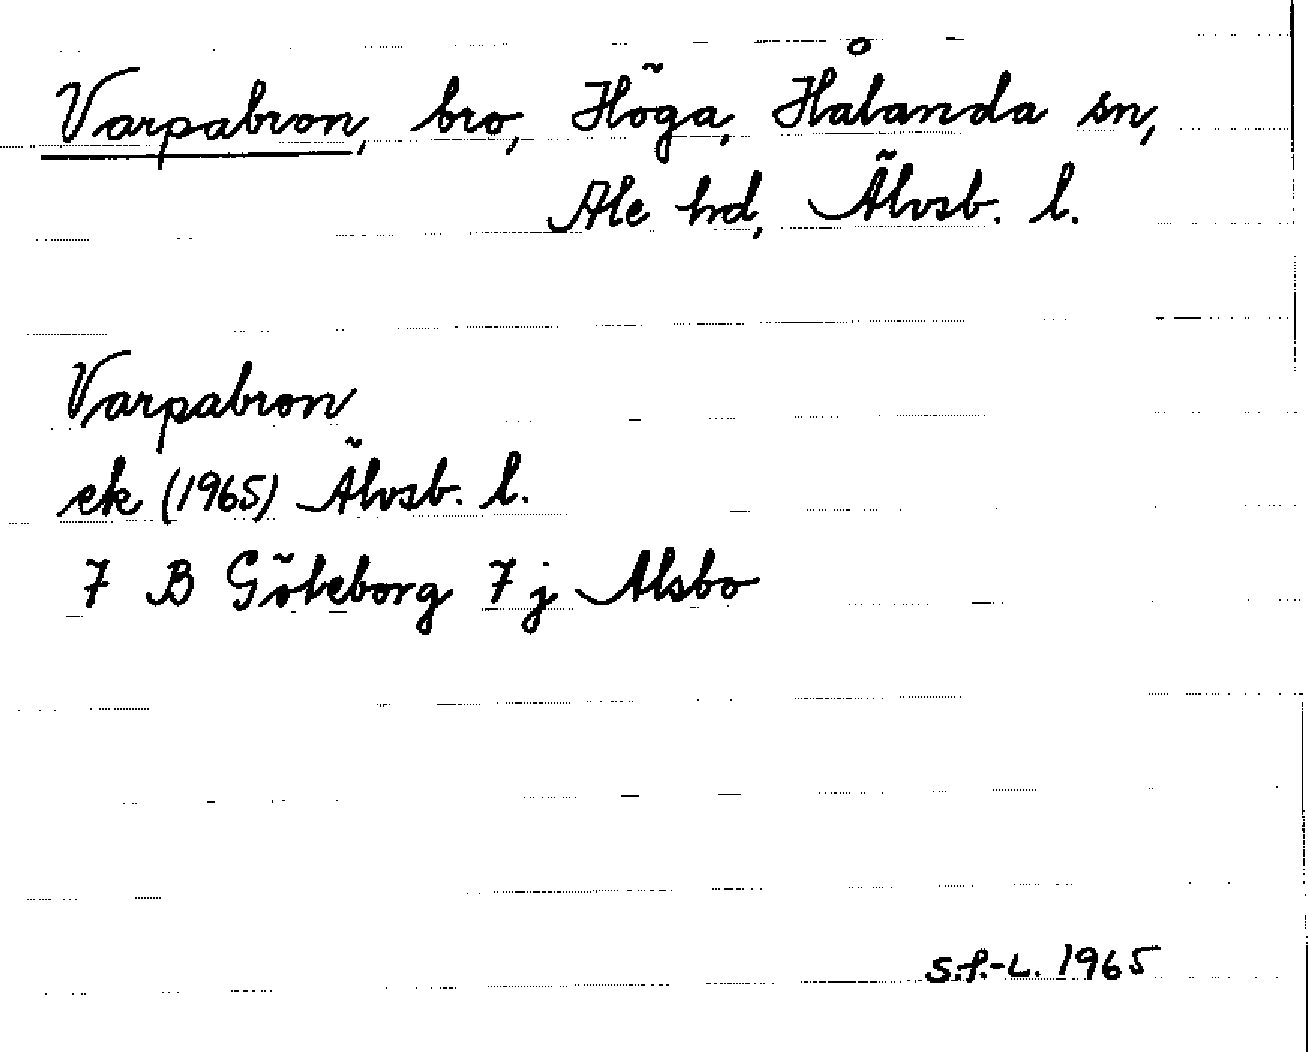 Varpabron, bro, Höga, Hålanda sn,
Ale hd, Älvsb. l.
Varpabron
ek (1965) Älvsb. l.
7 B Göteborg 7 j Alsbo
S.f.-L. 1965